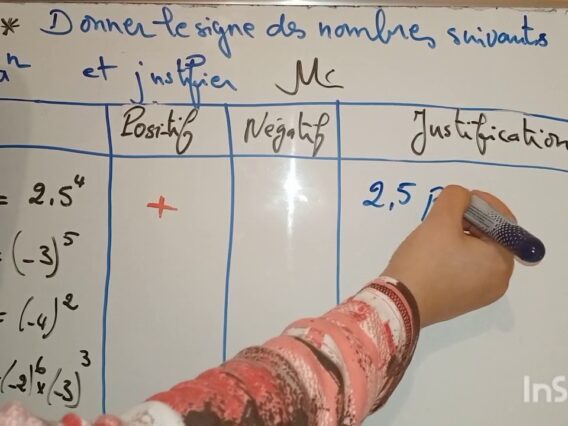 * Donner le signe des nombres suivants
aⁿ et justifier Mc
Positif Négatif Justification
= 2,5⁴ + 2,5 p
= (-3)⁵
= (-4)²
(-2)⁶ × (-3)³
InS